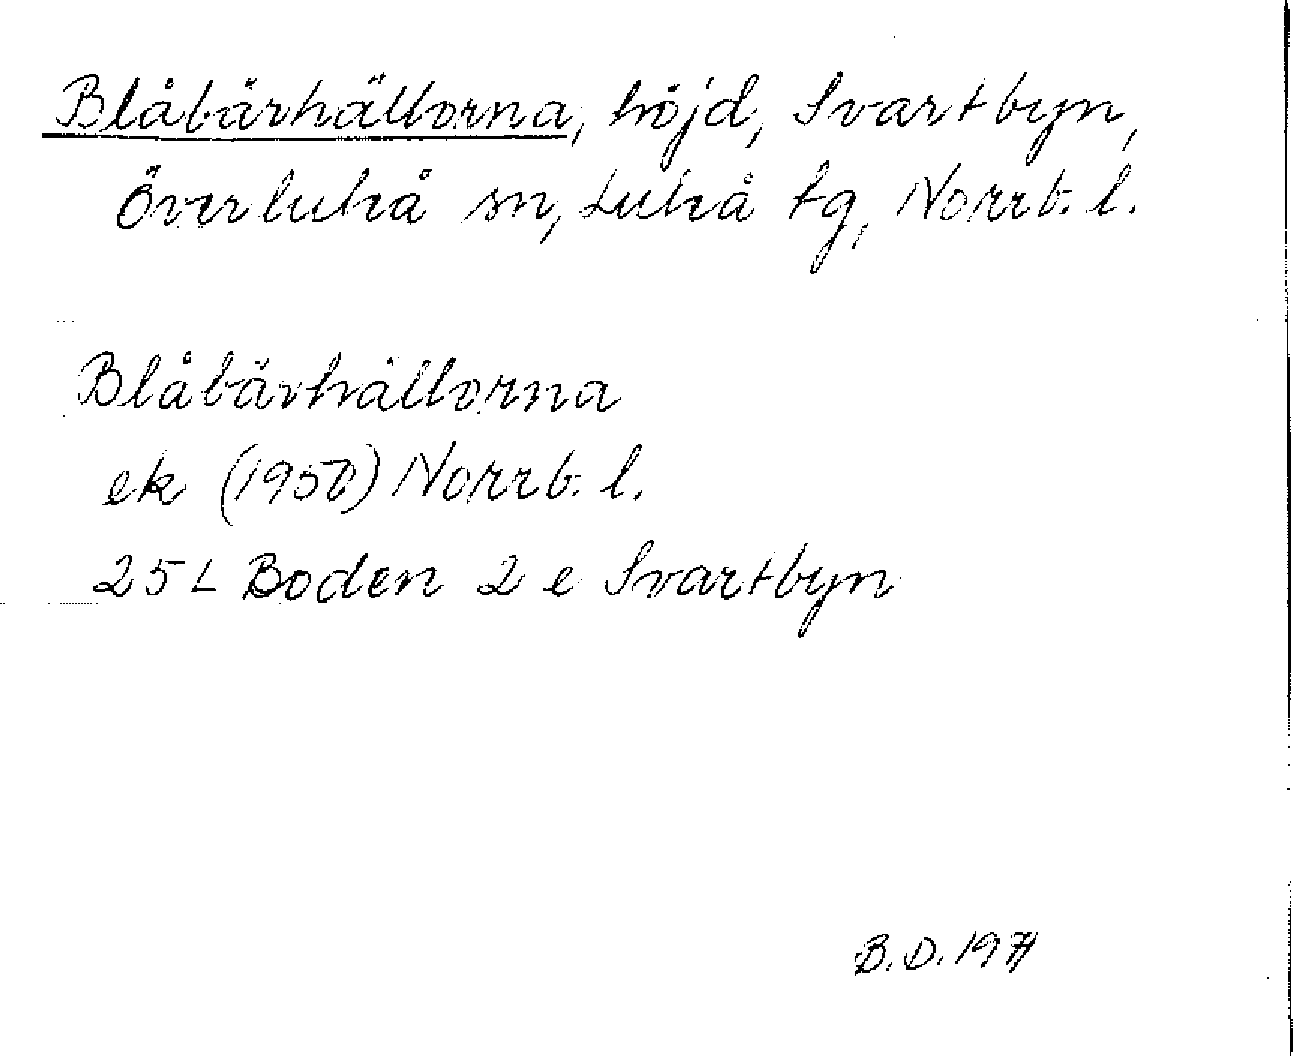 Blåbärhällorna, höjd, Svartbyn,
Överluleå sn, Luleå tg, Norrb. l.
Blåbärhällorna
ek (1950) Norrb. l.
25 L Boden 2 e Svartbyn
B. D. 1971